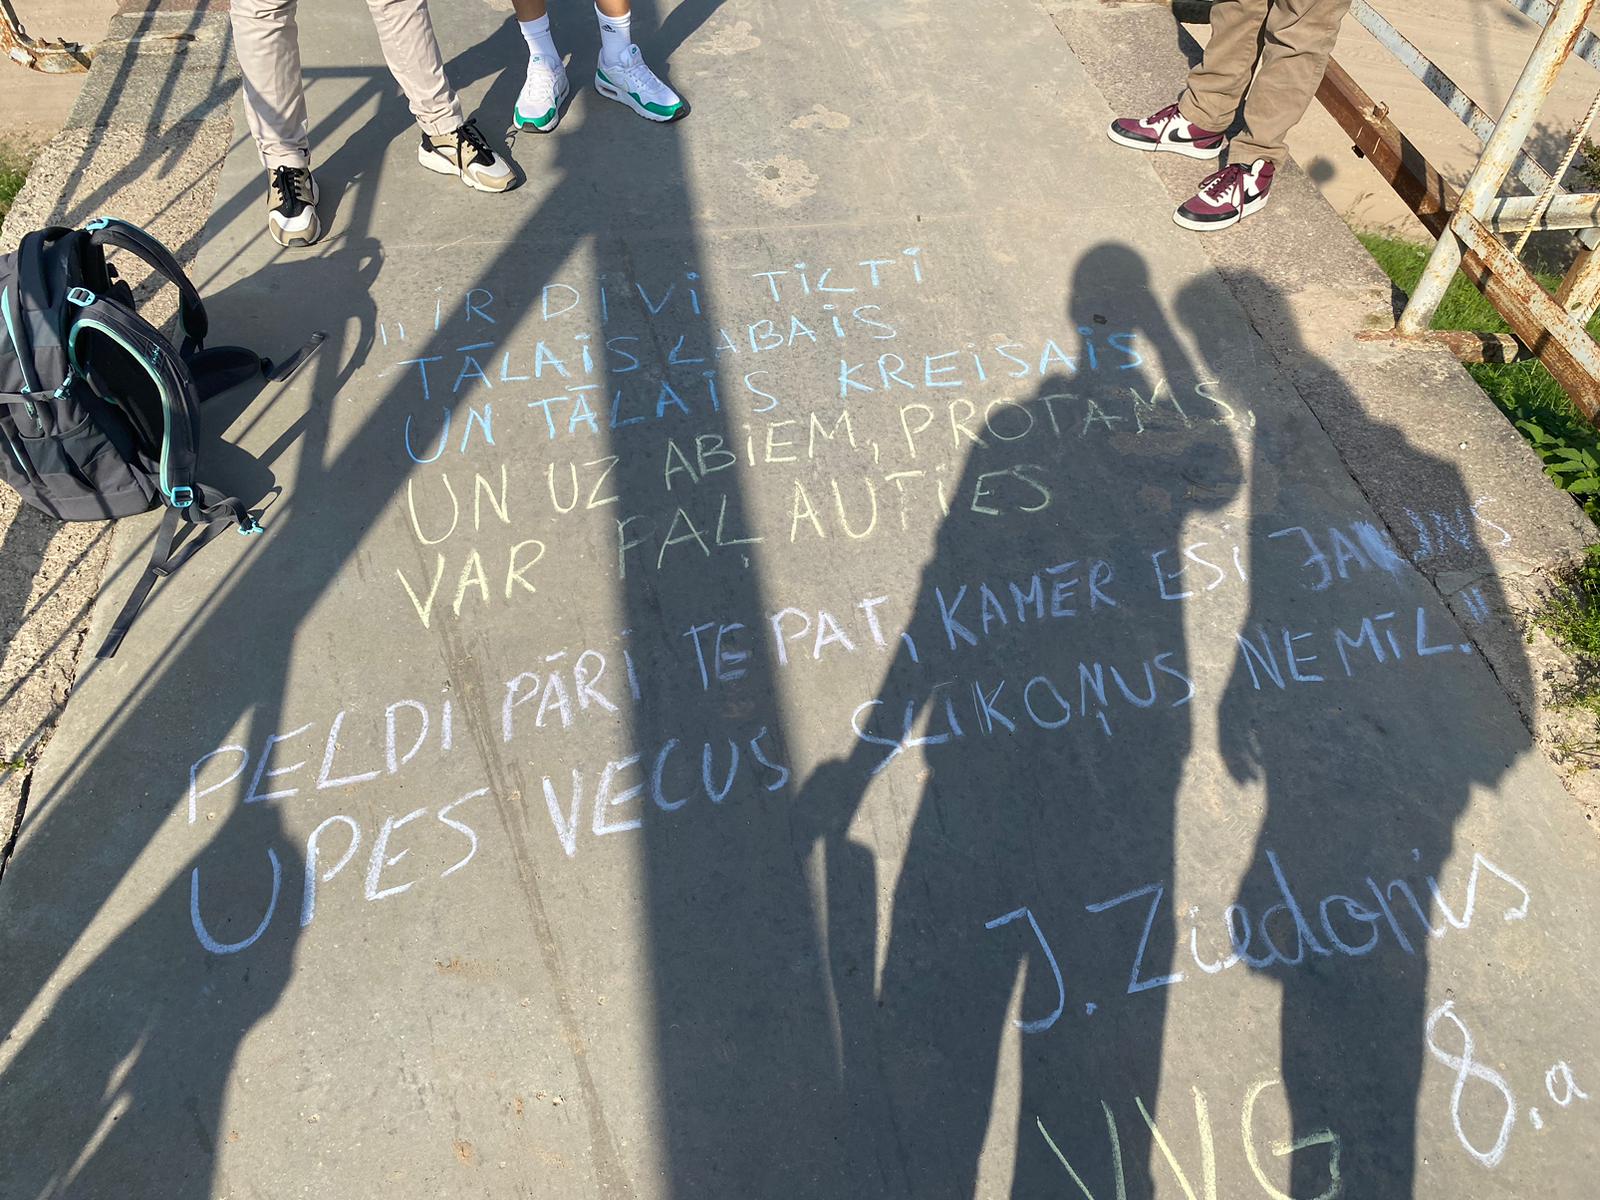 "IR DIVI TILTI
TĀLAIS LABAIS
UN TĀLAIS KREISAIS
UN UZ ABIEM, PROTAMS,
VAR PAĻAUTIES
PELDI PĀRI TE PAT, KAMĒR ESI JAUNS
UPES VECUS SLIKOŅUS NEMĪL."
J. Ziedonis
8.a
VVG